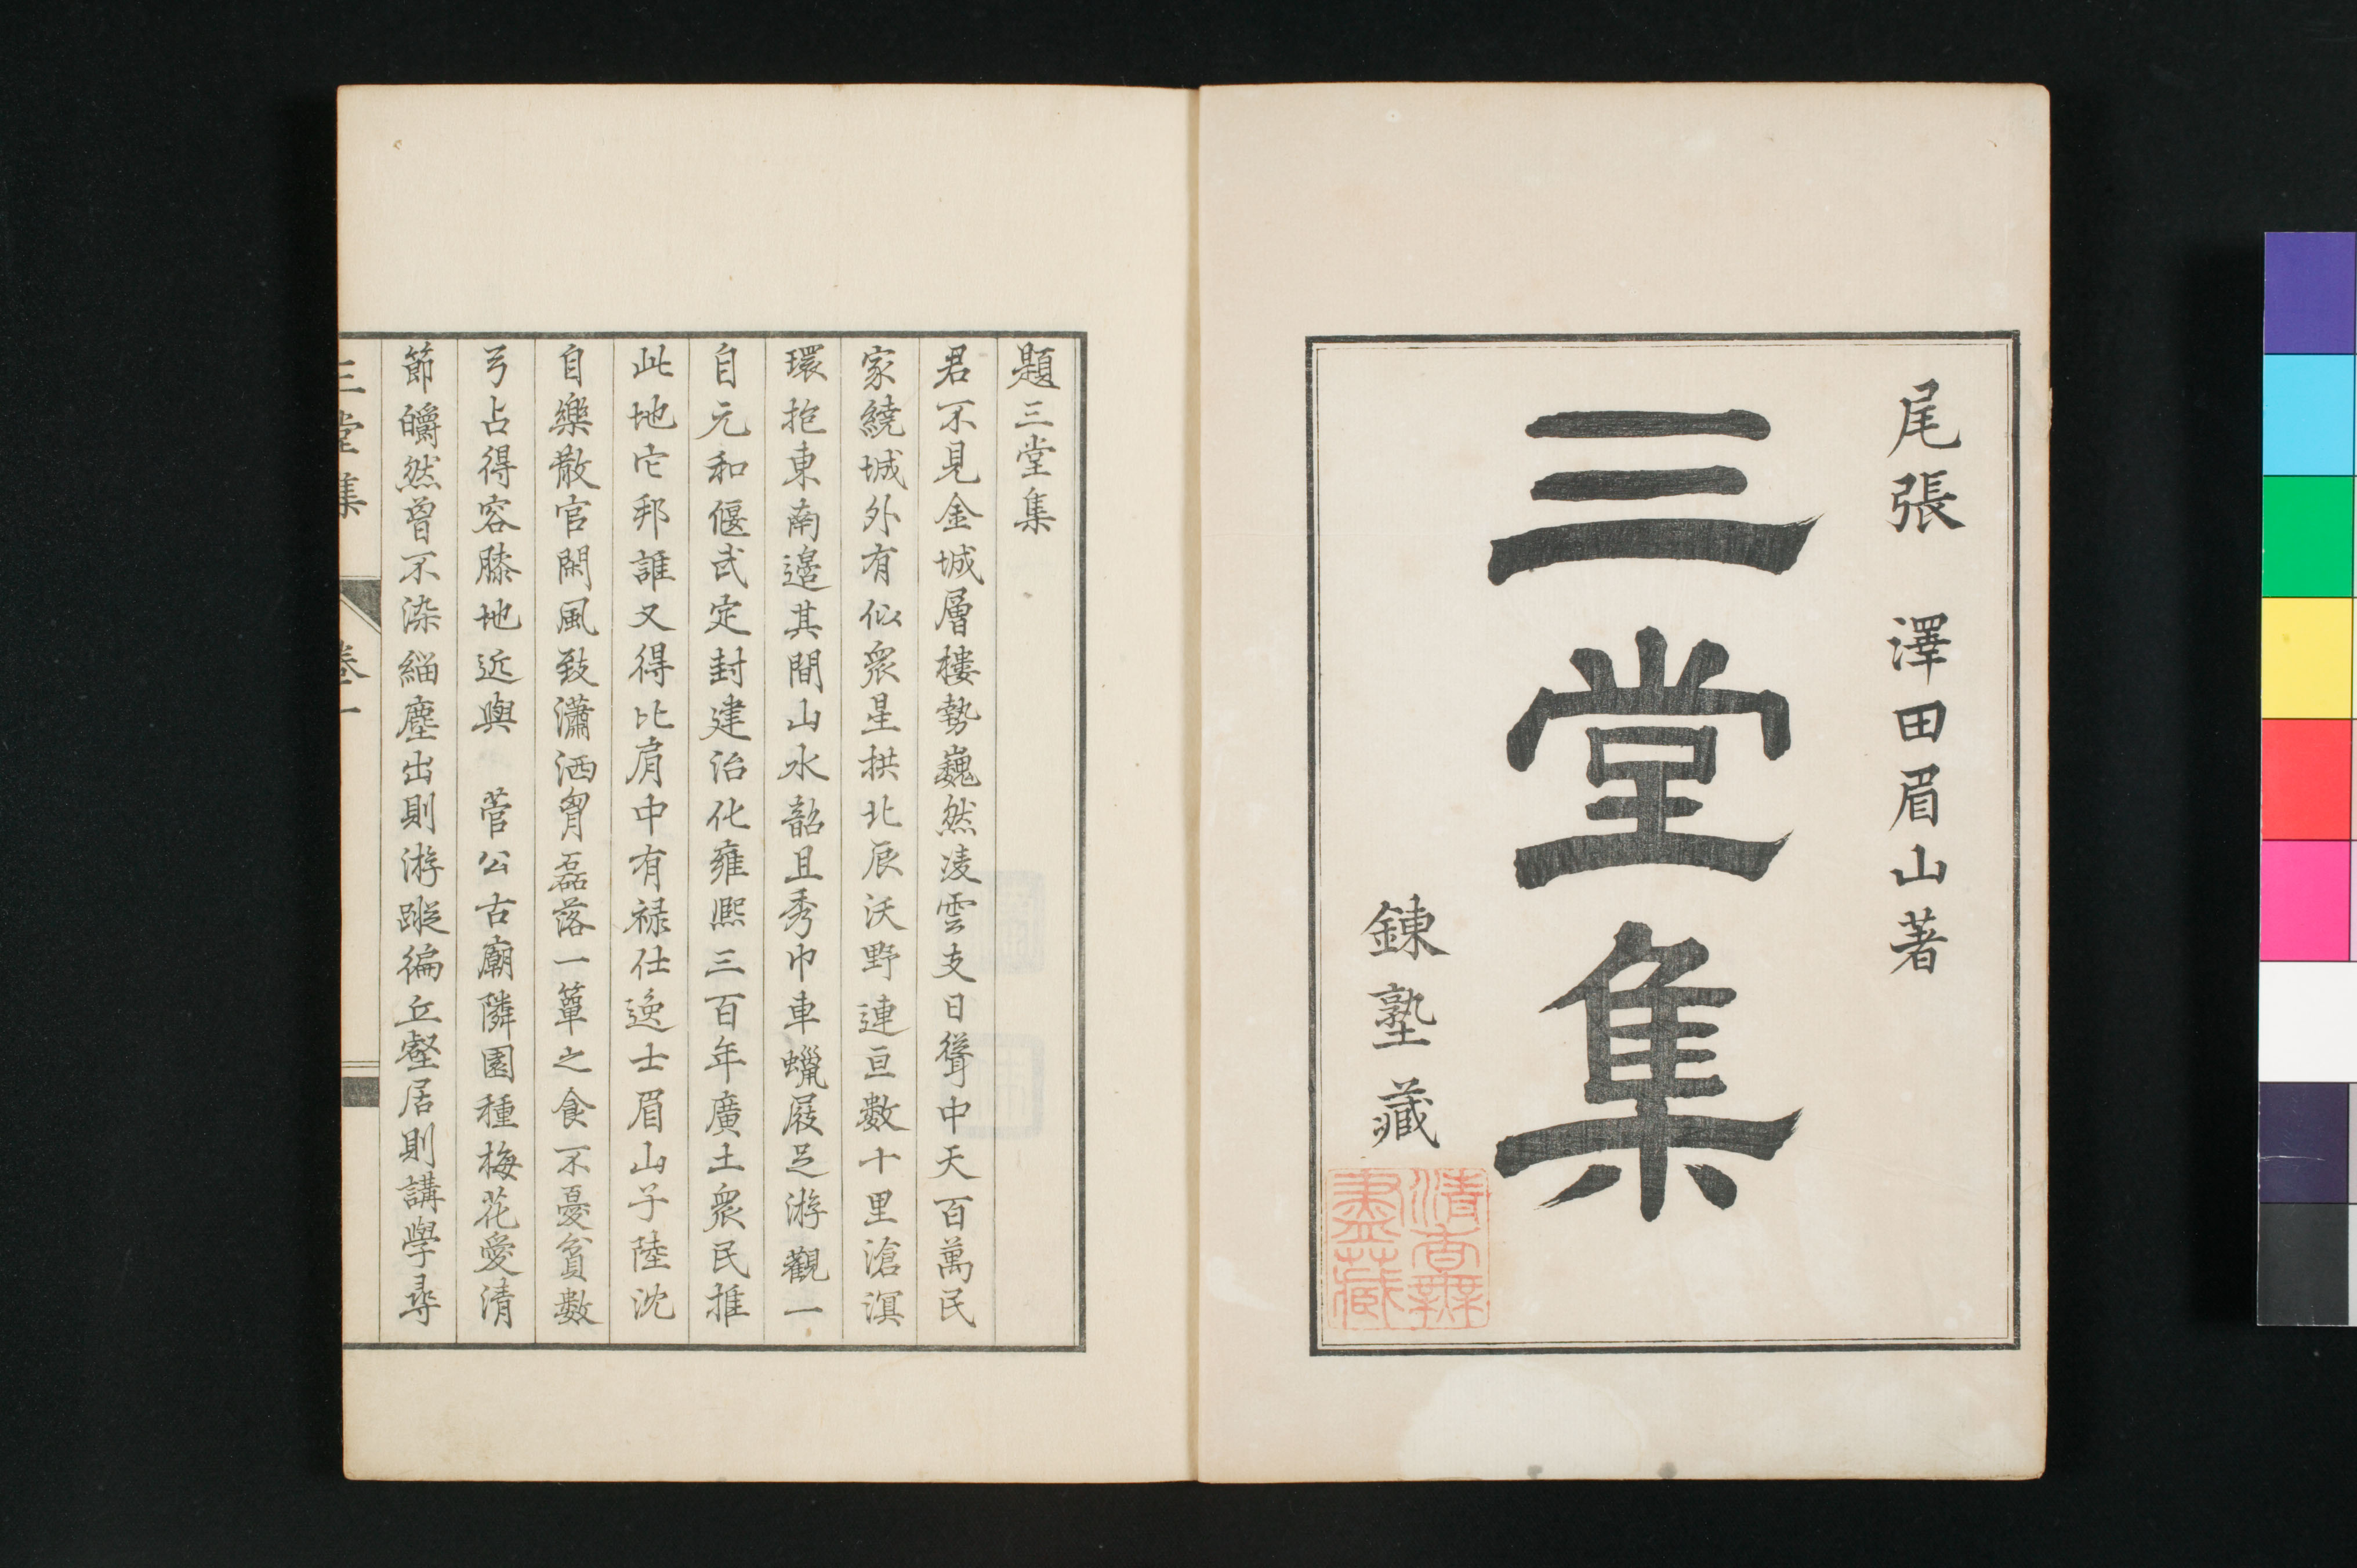 尾張 澤田眉山著
三堂集
錬塾藏
題三堂集
君不見金城層樓勢巍然凌雲支日聳中天百萬民
家繞城外有似衆星拱北辰沃野連亘數十里滄溟
環抱東南邊其間山水韶且秀巾車蠟屐足游觀一
自元和偃武定封建治化雍熙三百年廣土衆民推
此地它邦誰又得比肩中有禄仕逸士眉山子陸沈
自樂散官閑風致瀟洒胷磊落一簞之食不憂貧數
弓占得容膝地近與 菅公古廟隣園種梅花愛清
節皭然曾不染緇塵出則游蹤徧丘壑居則講學尋
三堂集 卷一